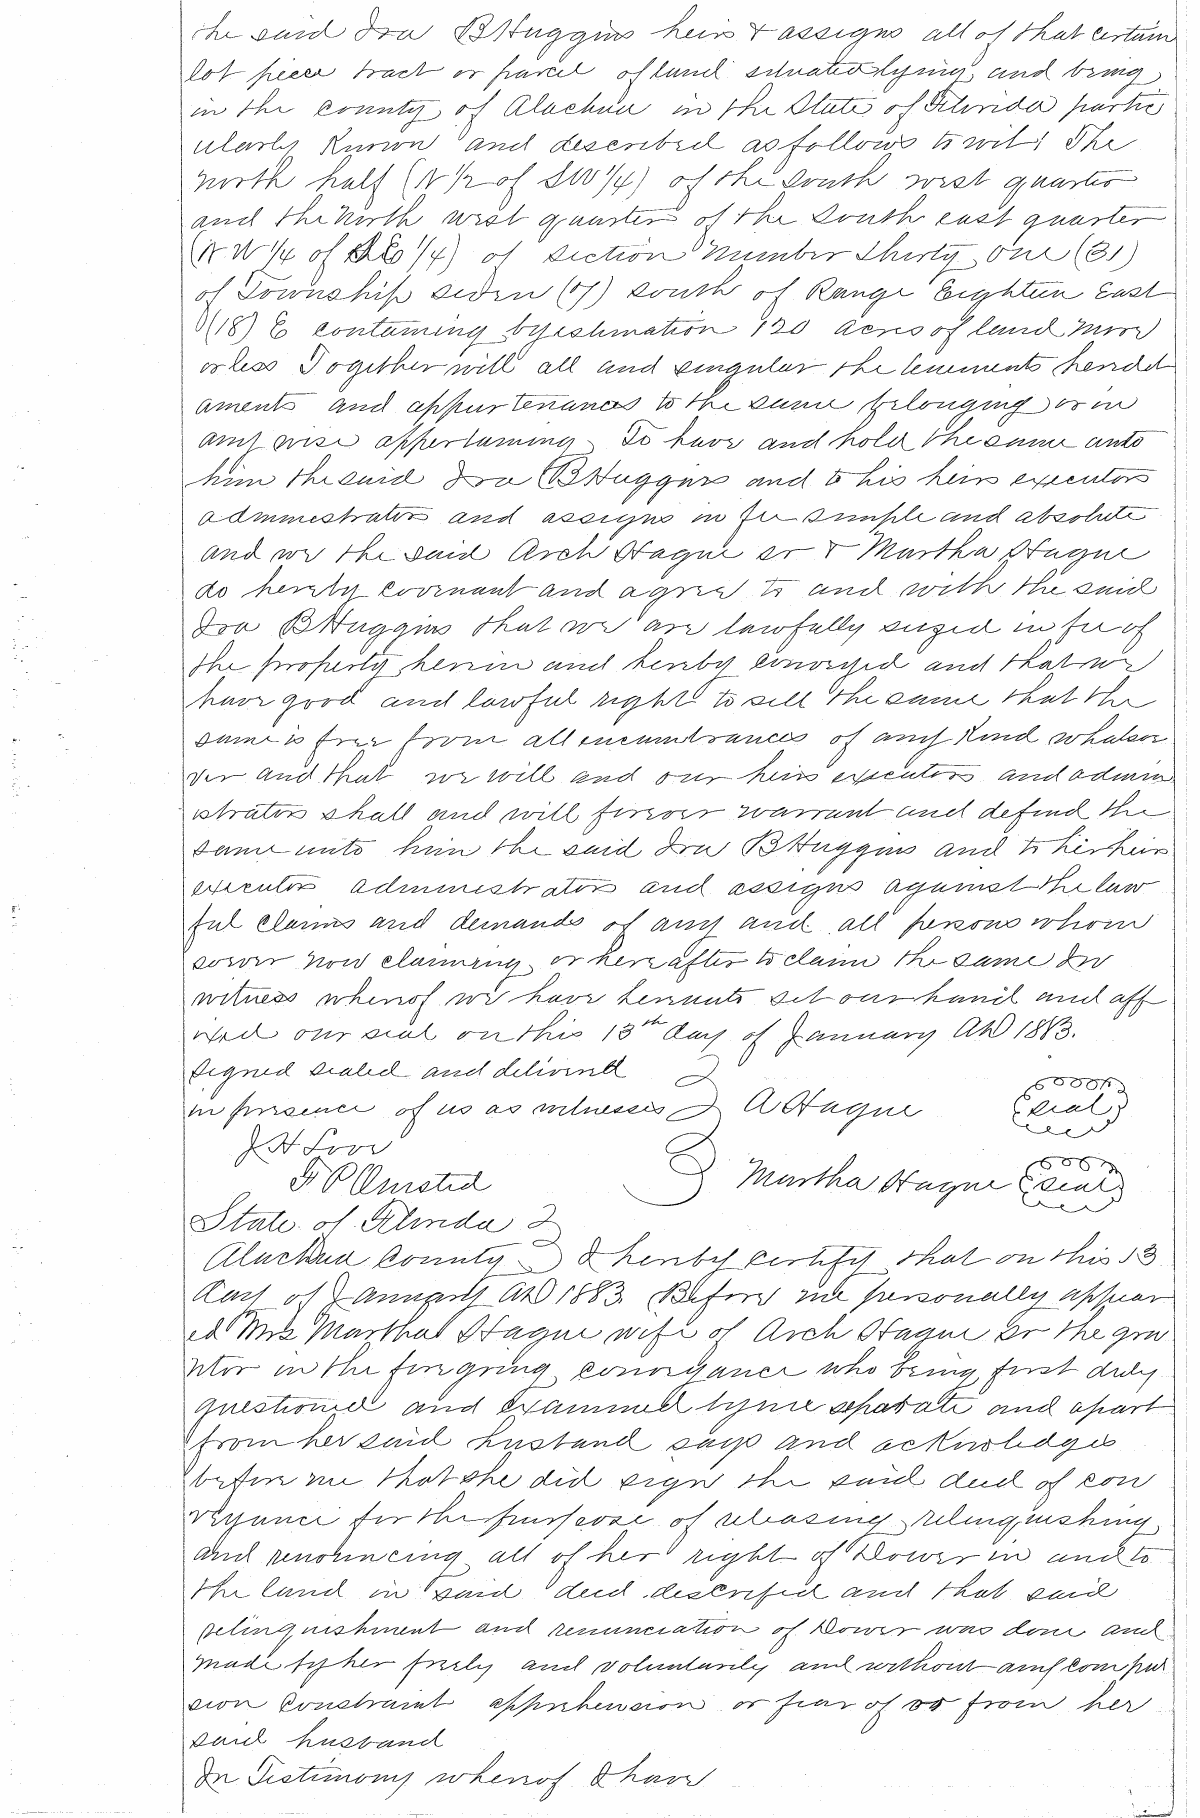 the said Ira B Huggins heirs & assigns all of that certain
lot piece tract or parcel of land situated lying and being
in the county of Alachua in the State of Florida partic
ularly Known and described as follows to wit: The
north half (N 1/2 of SW 1/4) of the South west quarter
and the North west quarter of the South east quarter
(N W 1/4 of SE 1/4) of section Number Thirty one (31)
of Township seven (7) south of Range Eighteen East
(18) E containing by estimation 120 acres of land more
or less Together will all and singular the tenements heredit
aments and appurtenances to the same belonging or in
any wise appertaining To have and hold the same unto
him the said Ira B Huggins and to his heirs executors
administrators and assigns in fee simple and absolute
and we the said Arch Hague sr & Martha Hague
do hereby covenant and agree to and with the said
Ira B Huggins that we are lawfully seized in fee of
the property herein and hereby conveyed and that we
have good and lawful right to sell the same that the
same is free from all encumbrances of any Kind whatsoe
ver and that we will and our heirs executors and admin
istrators shall and will forever warrant and defend the
same unto him the said Ira B Huggins and to his heirs
executors administrators and assigns against the law
ful claims and demands of any and all persons whom
soever now claiming or hereafter to claim the same In
witness whereof we have hereunto set our hand and aff
ixed our seal on this 13th day of January AD 1883.
Signed sealed and delivered
in presence of us as witnesses A Hague seal
J H Love
F P Olmsted Martha Hague seal
State of Florida
Alachua County I hereby certify that on this 13
day of January AD 1883 Before me personally appear
ed Mrs Martha Hague wife of Arch Hague sr the gra
ntor in the foregoing conveyance who being first duly
questioned and examined by me separate and apart
from her said husband says and acknowledges
before me that she did sign the said deed of con
veyance for the purpose of releasing relinquishing
and renouncing all of her right of Dower in and to
the land in said deed described and that said
relinquishment and renunciation of Dower was done and
made by her freely and voluntarily and without any compul
sion constraint apprehension or fear of or from her
said husband
In Testimony whereof I have